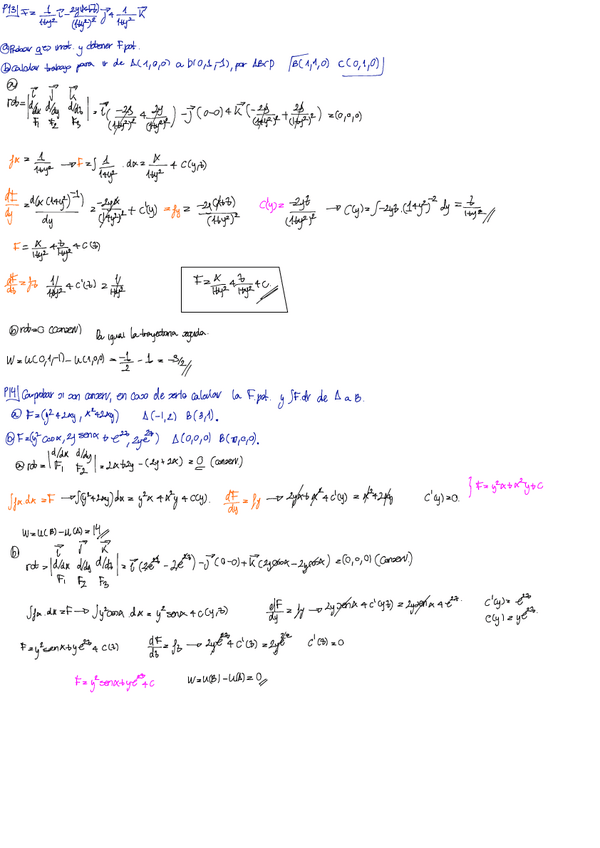 P13| F = 1/(1+y²) i - 2y(x+z)/(1+y²)² j + 1/(1+y²) k
ⓐ Probar q es irrot. y obtener F.pot.
ⓑ Calcular trabajo para ir de A(1,0,0) a D(0,1,-1), por ABCD B(1,1,0) C(0,1,0)
ⓐ
rot = | i j k ; d/dx d/dy d/dz ; F₁ F₂ F₃ | = i(-2y/(1+y²)² + 2y/(1+y²)²) - j(0-0) + k(-2y/(1+y²)² + 2y/(1+y²)²) = (0,0,0)
fx = 1/(1+y²) → F = ∫ 1/(1+y²) · dx = x/(1+y²) + C(y,z)
dF/dy = d(x(1+y²)⁻¹)/dy = -2yx/(1+y²)² + C'(y) = fy = -2y(x+z)/(1+y²)² C'(y) = -2yz/(1+y²)² → C(y) = ∫-2yz·(1+y²)⁻² dy = z/(1+y²)
F = x/(1+y²) + z/(1+y²) + C(z)
dF/dz = fz 1/(1+y²) + C'(z) = 1/(1+y²) F = x/(1+y²) + z/(1+y²) + C
ⓑ rot=0 (conserv) Da igual la trayectoria seguida.
W = U(0,1,-1) - U(1,0,0) = -1/2 - 1 = -3/2
P14| Comprobar si son conserv, en caso de serlo calcular la F.pot. y ∫F dr de A a B.
ⓐ F = (y²+2xy, x²+2xy) A(-1,2) B(3,1).
ⓑ F = (y² cos x, 2y sen x + e^2z, 2ye^2z) A(0,0,0) B(π,0,0).
ⓐ rot = | d/dx d/dy ; F₁ F₂ | = 2x+2y - (2y+2x) = 0 (conserv)
∫fx dx = F → ∫(y²+2xy)dx = y²x + x²y + C(y). dF/dy = fy → 2yx + x² + C'(y) = x² + 2xy C'(y) = 0. } F = y²x + x²y + C
W = U(B) - U(A) = 14
ⓑ
rot = | i j k ; d/dx d/dy d/dz ; F₁ F₂ F₃ | = i(2e^2z - 2e^2z) - j(0-0) + k(2ycosx - 2ycosx) = (0,0,0) (conserv)
∫fx·dx = F → ∫y²cosx·dx = y² senx + C(y,z) dF/dy = fy → 2ysenx + C'(y,z) = 2ysenx + e^2z. C'(y) = e^2z C(y) = ye^2z.
F = y² senx + ye^2z + C(z) dF/dz = fz → 2ye^2z + C'(z) = 2ye^2z C'(z) = 0
F = y² senx + ye^2z + C W = U(B) - U(A) = 0